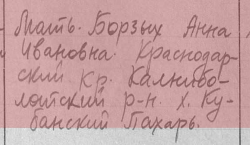 Мать. Борзых Анна
Ивановна. Краснодар-
ский кр. Калнибо-
лотский р-н. х. Ку-
банский Пахарь.